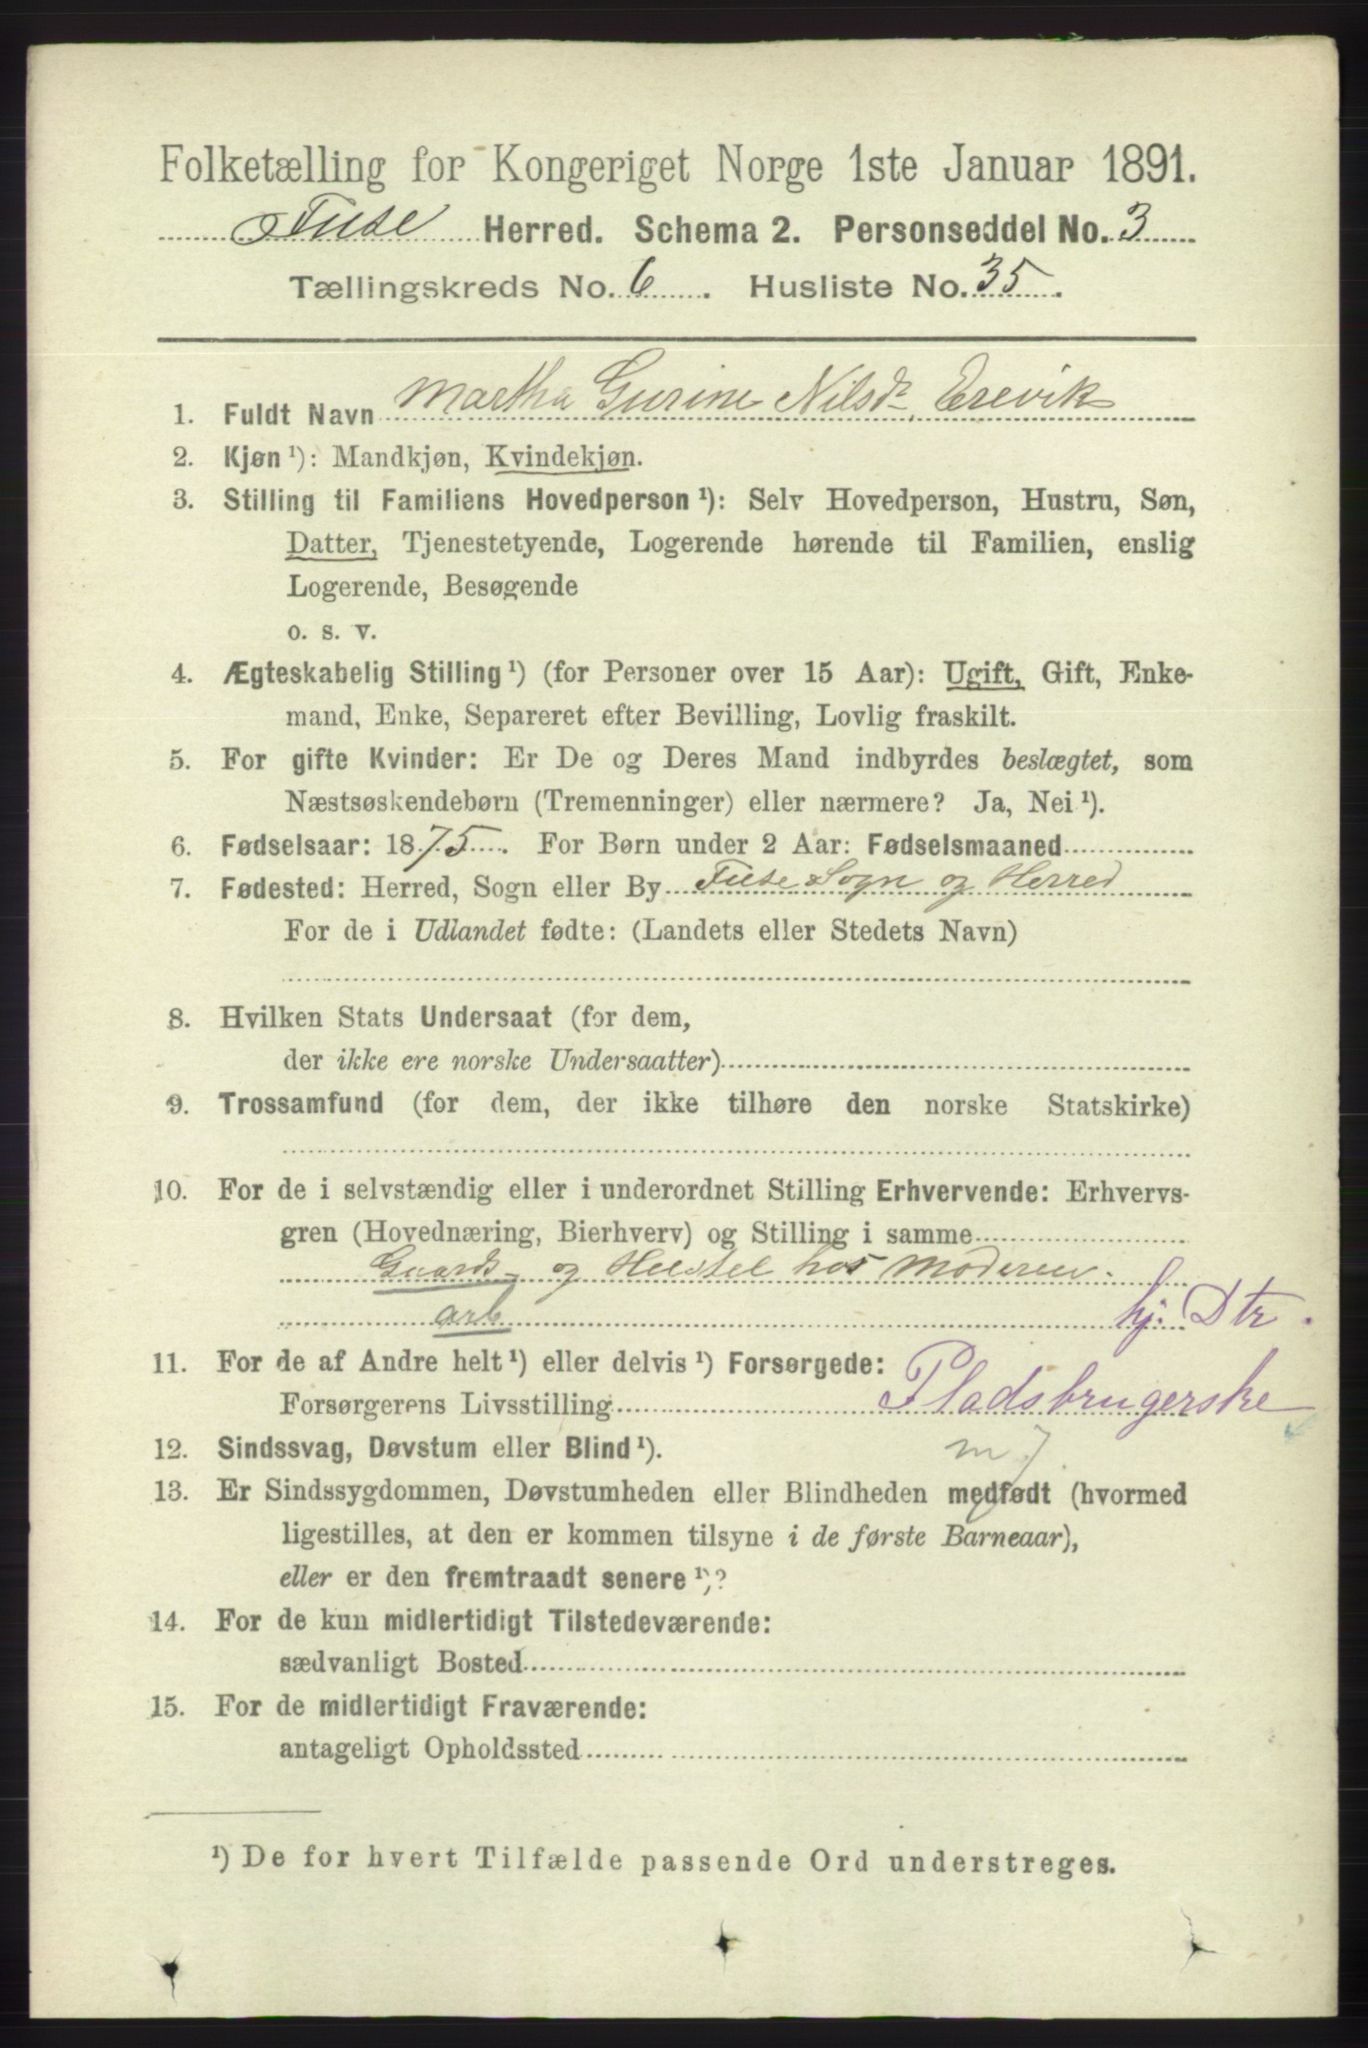 Folketælling for Kongeriget Norge 1ste Januar 1891.
Fuse Herred. Schema 2. Personseddel No. 3
Tællingskreds No. 6. Husliste No. 35.
1. Fuldt Navn Martha Gurine Nilsdr. Erevik
2. Kjøn ¹): Mandkjøn, Kvindekjøn.
3. Stilling til Familiens Hovedperson ¹): Selv Hovedperson, Hustru, Søn,
Datter, Tjenestetyende, Logerende hørende til Familien, enslig
Logerende, Besøgende
o. s. v.
4. Ægteskabelig Stilling ¹) (for Personer over 15 Aar): Ugift, Gift, Enke-
mand, Enke, Separeret efter Bevilling, Lovlig fraskilt.
5. For gifte Kvinder: Er De og Deres Mand indbyrdes beslægtet, som
Næstsøskendebørn (Tremenninger) eller nærmere? Ja, Nei ¹).
6. Fødselsaar: 1875. For Børn under 2 Aar: Fødselsmaaned
7. Fødested: Herred, Sogn eller By Fuse Sogn og Herred
For de i Udlandet fødte: (Landets eller Stedets Navn)
8. Hvilken Stats Undersaat (for dem,
der ikke ere norske Undersaatter)
9. Trossamfund (for dem, der ikke tilhøre den norske Statskirke)
10. For de i selvstændig eller i underordnet Stilling Erhvervende: Erhvervs-
gren (Hovednæring, Bierhverv) og Stilling i samme
Gaards- og Huustel hos Moderen.
arb hj. Dtr.
11. For de af Andre helt ¹) eller delvis ¹) Forsørgede:
Forsørgerens Livsstilling Pladsbrugerske
12. Sindssvag, Døvstum eller Blind ¹). m J
13. Er Sindssygdommen, Døvstumheden eller Blindheden medfødt (hvormed
ligestilles, at den er kommen tilsyne i de første Barneaar),
eller er den fremtraadt senere ¹)?
14. For de kun midlertidigt Tilstedeværende:
sædvanligt Bosted
15. For de midlertidigt Fraværende:
antageligt Opholdssted
¹) De for hvert Tilfælde passende Ord understreges.